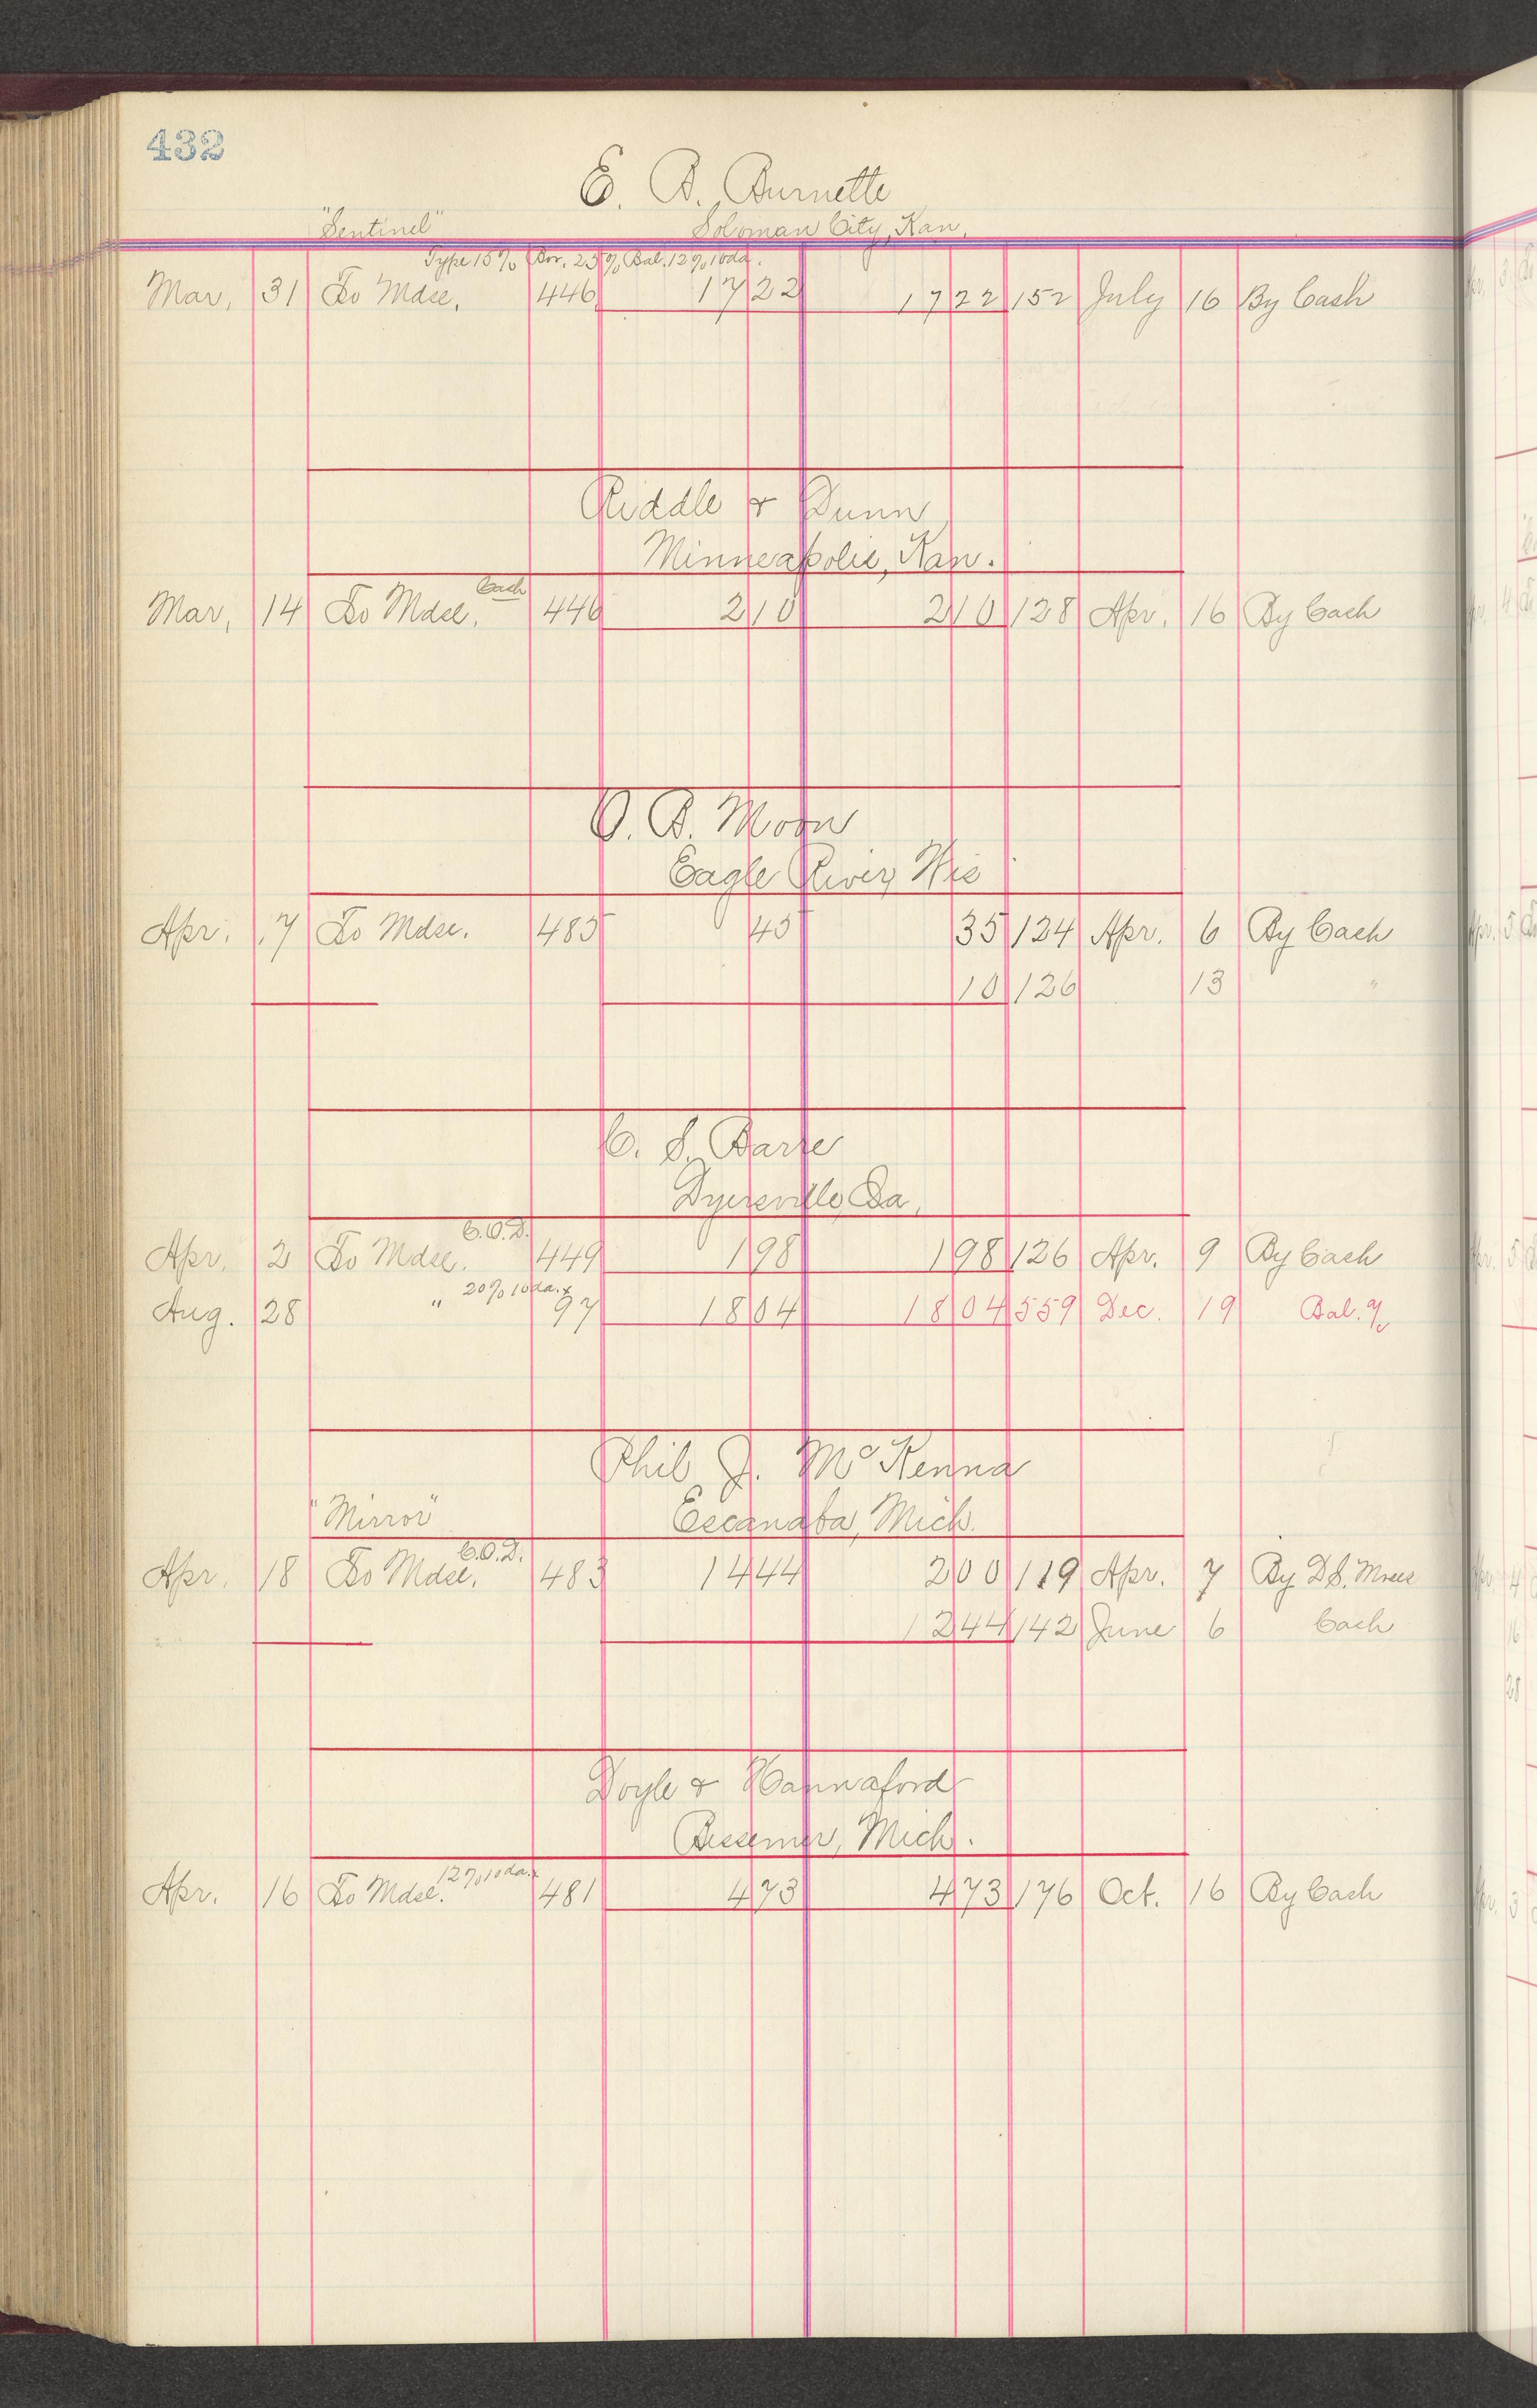 432
E. B. Burnette
"Sentinel" Soloman City, Kan.
Type 15% Bor. 25% Bal. 12% 10 da.
Mar. 31 To Mdse. 446 17 22 17 22 152 July 16 By Cash
Riddle & Dunn
Minneapolis, Kan.
Cash
Mar. 14 To Mdse. 446 2 10 2 10 128 Apr. 16 By Cash
O. B. Moon
Eagle River, Wis
Apr. 7 To Mdse. 485 45 35 124 Apr. 6 By Cash
10 126 13 "
C. S. Barre
Dyersville, Ia.
C.O.D.
Apr. 2 To Mdse. 449 1 98 1 98 126 Apr. 9 By Cash
20% 10 da. x
Aug. 28 " 97 18 04 18 04 559 Dec. 19 Bal. %
Phil J. McKenna
"Mirror" Escanaba, Mich.
C.O.D.
Apr. 18 To Mdse. 483 14 44 2 00 119 Apr. 7 By D.S.
12 44 142 June 6 Cash
Doyle & Hannaford
Bessemer, Mich.
12% 10 da. x
Apr. 16 To Mdse. 481 4 73 4 73 176 Oct. 16 By Cash